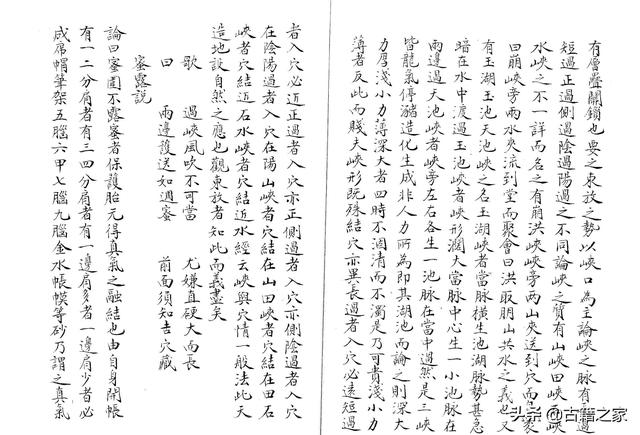 有層疊關鎖也要之束放之勢以峽口為主論峽之脈有過
短過正過側過陰過陽過之不同論峽之質有山峽田峽
水峽之不一詳而名之有崩洪峽峽旁兩山夾送到穴而聚
曰崩峽旁兩水夾流到堂而聚會曰洪取朋山共水之義也又
有玉湖玉池天池峽之名玉湖峽者當脈橫生池湖脈勢甚急
暗在水中渡過玉池峽者峽形濶大當脈中心生一小池脈在
兩邊過天池峽者峽旁左右各生一池脈在當中過然是三峽
皆龍氣停豬造化生成非人力所為即其湖池而論之則深大
力厚淺小力薄深大者四時不涸清而不濁是乃可貴淺小力
薄者反此而賤夫峽形既殊結穴亦異長過者入穴必遠短過
者入穴必近正過者入穴亦正側過者入穴亦側陰過者入穴
在陰陽過者入穴在陽山峽者穴結在山田峽者穴結在田石
峽者穴結近石水峽者穴結近水經云峽與穴情一般法此天
造地設自然之應也觀束放者知此而義盡矣
歌 過峽風吹不可當 尤嫌直硬大而長
曰 兩邊護送如週密 前面須知吉穴藏
蜜露說
論曰蜜固不露蜜者保護胎元得真氣之融結也由自身開帳
有一二分肩者有三四分肩者有一邊肩多者一邊肩少者必
成屏帽筆架五腦六甲七腦九腦金水帳幙等砂乃謂之真氣
头条 @古籍之家